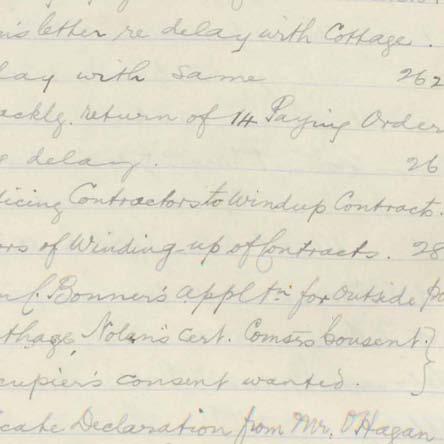 letter re delay with Cottage.
lay with same 262
ackg. return of 14 Paying Order
delay. 26
ticing Contractors to Windup Contracts.
ors of Winding-up of Contracts. 28
C. Bonner's appltn for outside
Nolan's Cert. Comsrs Consent }
cupier's consent wanted. }
icate Declaration from Mr. O'Hagan